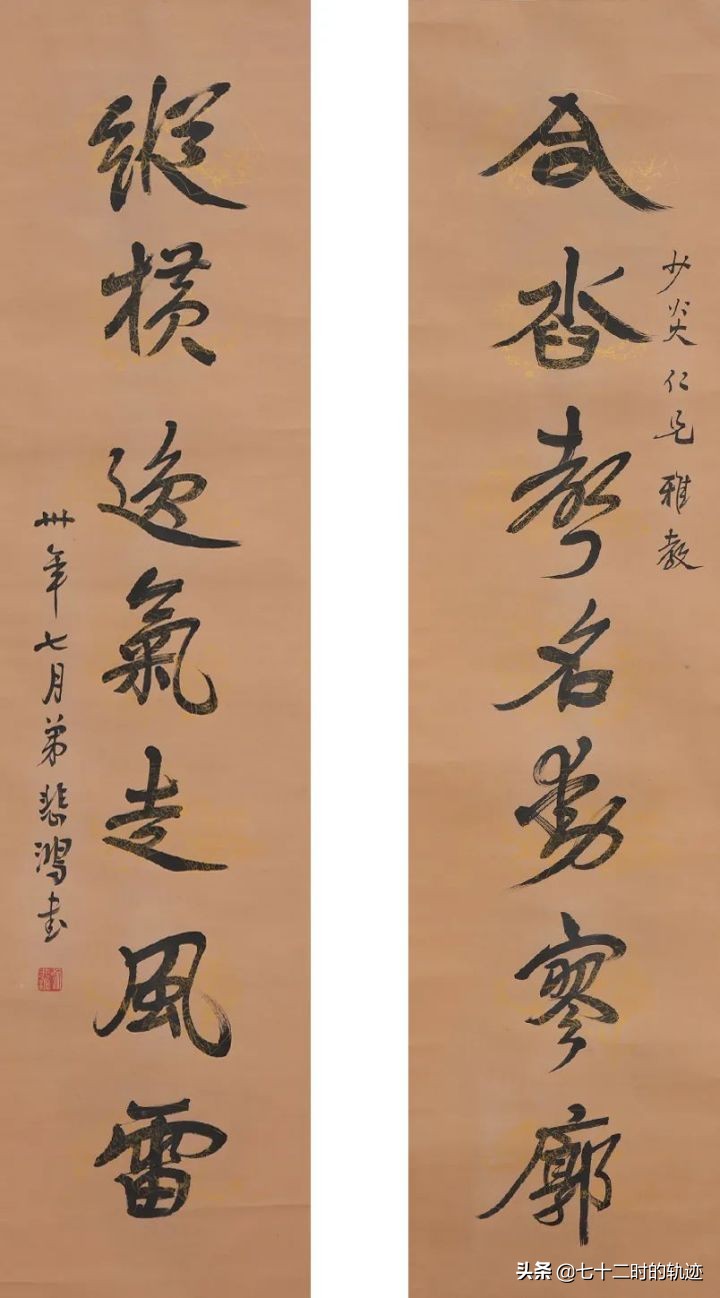 少炎仁兄雅教
合沓聲名動寥廓
縱橫逸氣走風雷
卅年七月弟悲鴻書
头条 @七十二时的轨迹